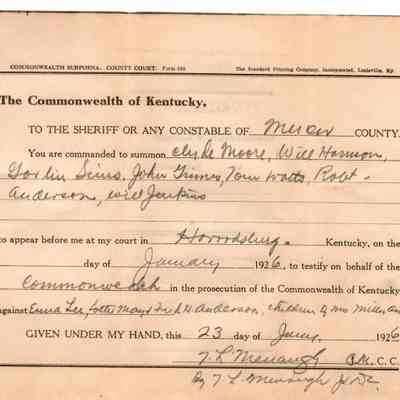 COMMONWEALTH SUBPOENA. COUNTY COURT. Form 103 The Standard Printing Company, Incorporated, Louisville, Ky.
The Commonwealth of Kentucky.
TO THE SHERIFF OR ANY CONSTABLE OF Mercer COUNTY:
You are commanded to summon Clyde Moore, Will Harmon,
Sims, John Grimes, Tom Watts, Robt.
Anderson, Will Jenkins
to appear before me at my court in Harrodsburg. Kentucky, on the
day of January 1926, to testify on behalf of the
Commonwealth in the prosecution of the Commonwealth of Kentucky
against Anderson, children of Mrs
GIVEN UNDER MY HAND, this 23 day of Jany. 1926
T L Menaugh C. C.
By T L Menaugh Jr D.C.